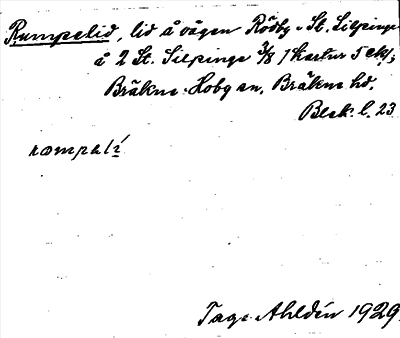 Rumpelid, lid å vägen Rödby - St. Silpinge
å 2 St. Silpinge 3/8 1 kartur 5 ekl;
Bräkne-Hoby sn, Bräkne hd,
Blek. l. 23
rompalí
Tage Ahldén 1929.